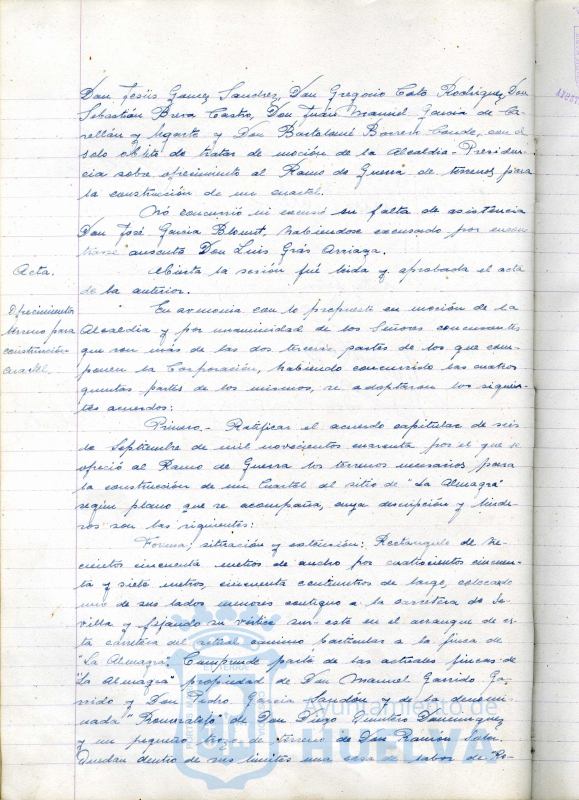 Don Jesús Gomez Sandrez, Don Gregorio Cato Rodriguez, Don
Sebastián Breva Castro, Don Juan Manuel Garcia de Ca-
rellán y Ugarte y Don Bartolomé Borrero Conde, con el
solo objeto de tratar de moción de la Alcaldia-Presiden-
cia sobre ofrecimiento al Ramo de Guerra de terrenos para
la construcción de un cuartel.
No concurrió ni excusó su falta de asistencia
Don José Garcia Blomut, habiendose excusado por encon-
trarse ausente Don Luis Grás Arriaza.
Acta.
Abierta la sesión fué leida y aprobada el acta
de la anterior.
Ofrecimiento
terreno para
construcción
cuartel.
En armonia con lo propuesto en moción de la
Alcaldia y por unanimidad de los Señores concurrentes
que son más de las dos terceras partes de los que com-
ponen la Corporación, habiendo concurrido las cuatro
quintas partes de los mismos, se adoptaron los siguien-
tes acuerdos:
Primero.- Ratificar el acuerdo capitular de seis
de Septiembre de mil novecientos cuarenta por el que se
ofreció al Ramo de Guerra los terrenos necesarios para
la construcción de un Cuartel al sitio de "La Almagra"
según plano que se acompaña, cuya descripción y linde-
ros son los siguientes:
Forma, situación y extensión: Rectangulo de
cientos cincuenta metros de ancho por cuatrocientos cincuen-
ta y siete metros, cincuenta centimetros de largo, colocado
uno de sus lados menores contiguo a la carretera de Se-
villa y fijando su vértice sur-este en el arranque de es-
ta carretera del actual camino particular a la finca de
"La Almagra". Comprende parte de las actuales fincas de
"La Almagra" propiedad de Don Manuel Garrido Ga-
rrido y Don Pedro Garcia Sandón y de la denomi-
nada "Romeralejo" de Don Diego Quintero Dominguez
y un pequeño trozo de terreno de Don Ramón
Quedan dentro de sus limites una casa de labor de Ro-
Ayuntamiento de
HUELVA